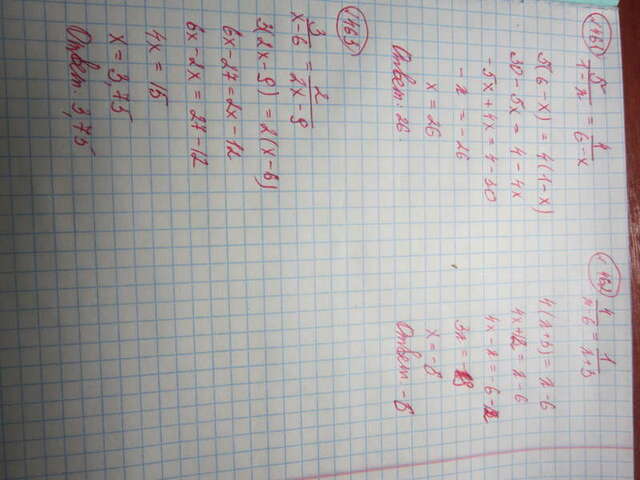 1461
5/(1-x) = 4/(6-x)
5(6-x) = 4(1-x)
30-5x = 4-4x
-5x+4x = 4-30
-x = -26
x = 26
Ответ: 26.
1462
4/(x-6) = 1/(x+3)
4(x+3) = x-6
4x+12 = x-6
4x-x = 6-12
3x =
x = -6
Ответ -6
1463
3/(x-6) = 2/(2x-9)
3(2x-9) = 2(x-6)
6x-27 = 2x-12
6x-2x = 27-12
4x = 15
x = 3,75
Ответ: 3,75